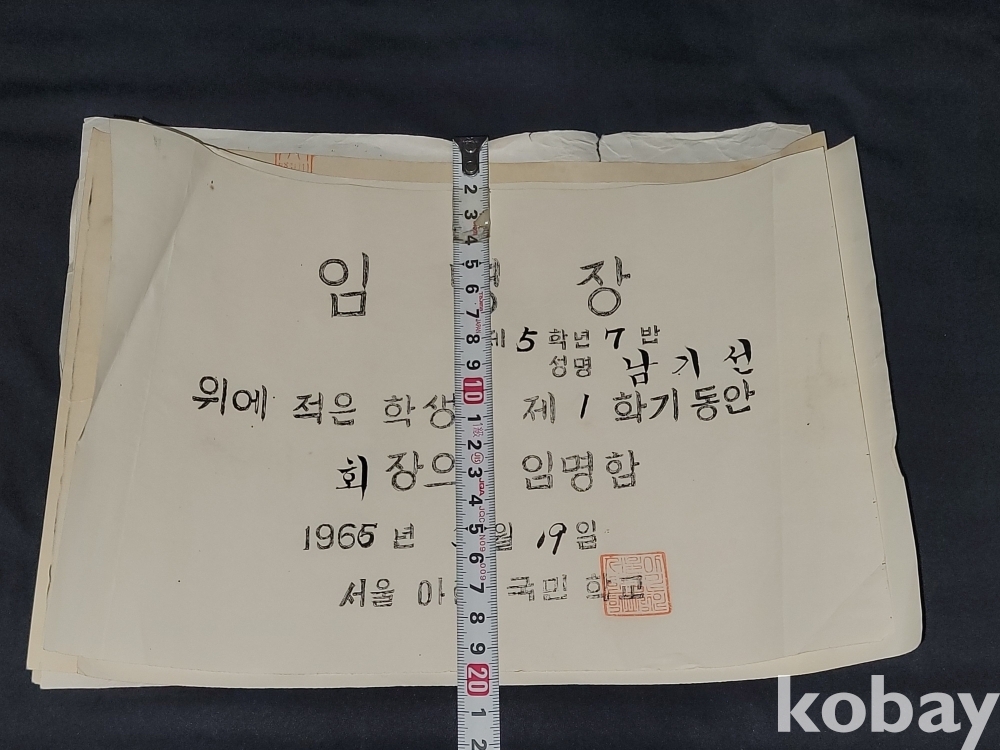 임 장
제 5 학년 7 반
성명 남기선
위에 적은 학생 제 1 학기동안
회장으 임명함
1965 년 월 19 일
서울 아 국민 학교
2 3 4 5 6 7 8 9 10 1 2 3 4 5 6 7 8 9 20 1 2
kobay